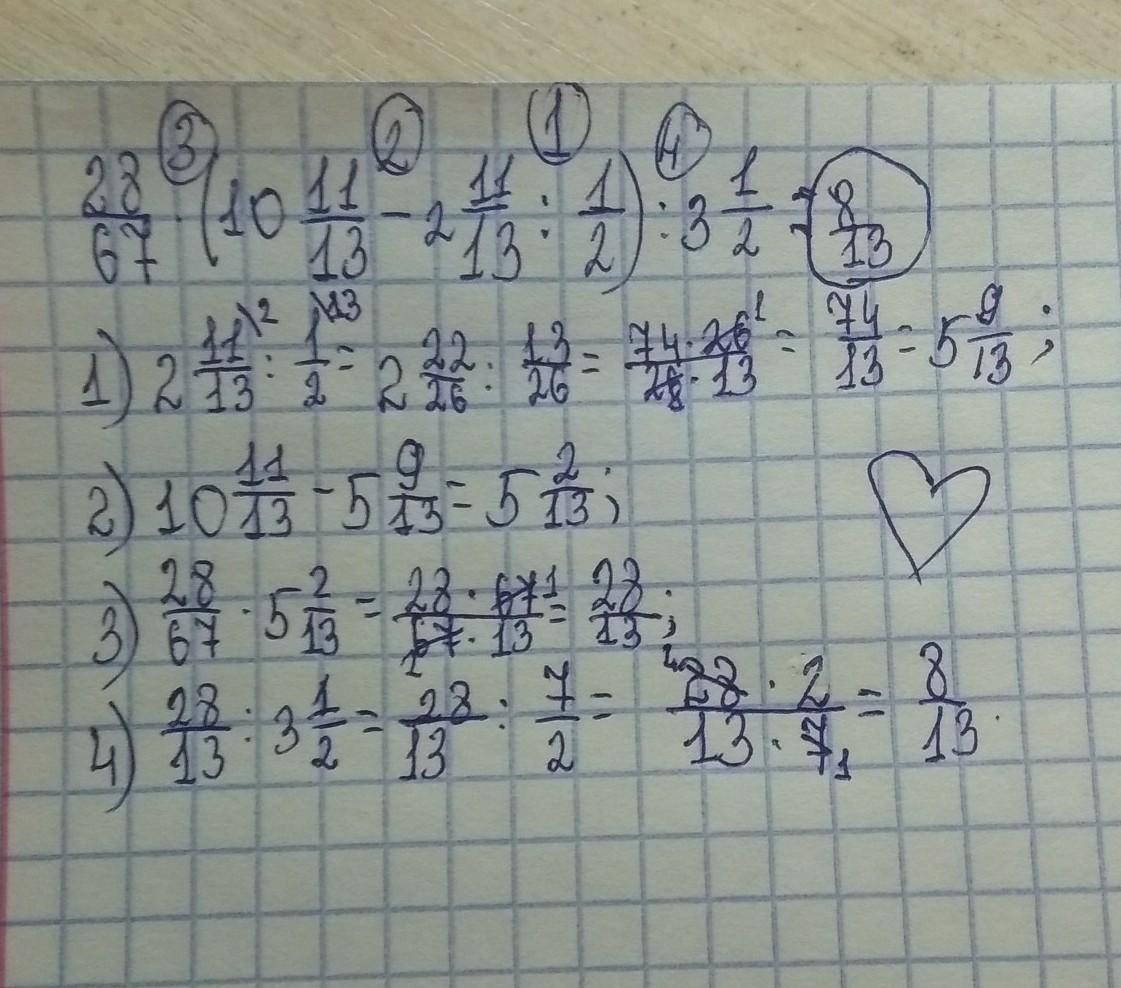 ③ ② ① ④
28/67 · (10 11/13 - 2 11/13 : 1/2) : 3 1/2 = 8/13
1) 2 11\2/13 : 1\13/2 = 2 22/26 : 13/26 = 74·26 1/26·13 = 74/13 = 5 9/13;
2) 10 11/13 - 5 9/13 = 5 2/13;
3) 28/67 · 5 2/13 = 28·67 1/1 67·13 = 28/13;
4) 28/13 : 3 1/2 = 28/13 : 7/2 = 4 28·2/13·7 1 = 8/13.